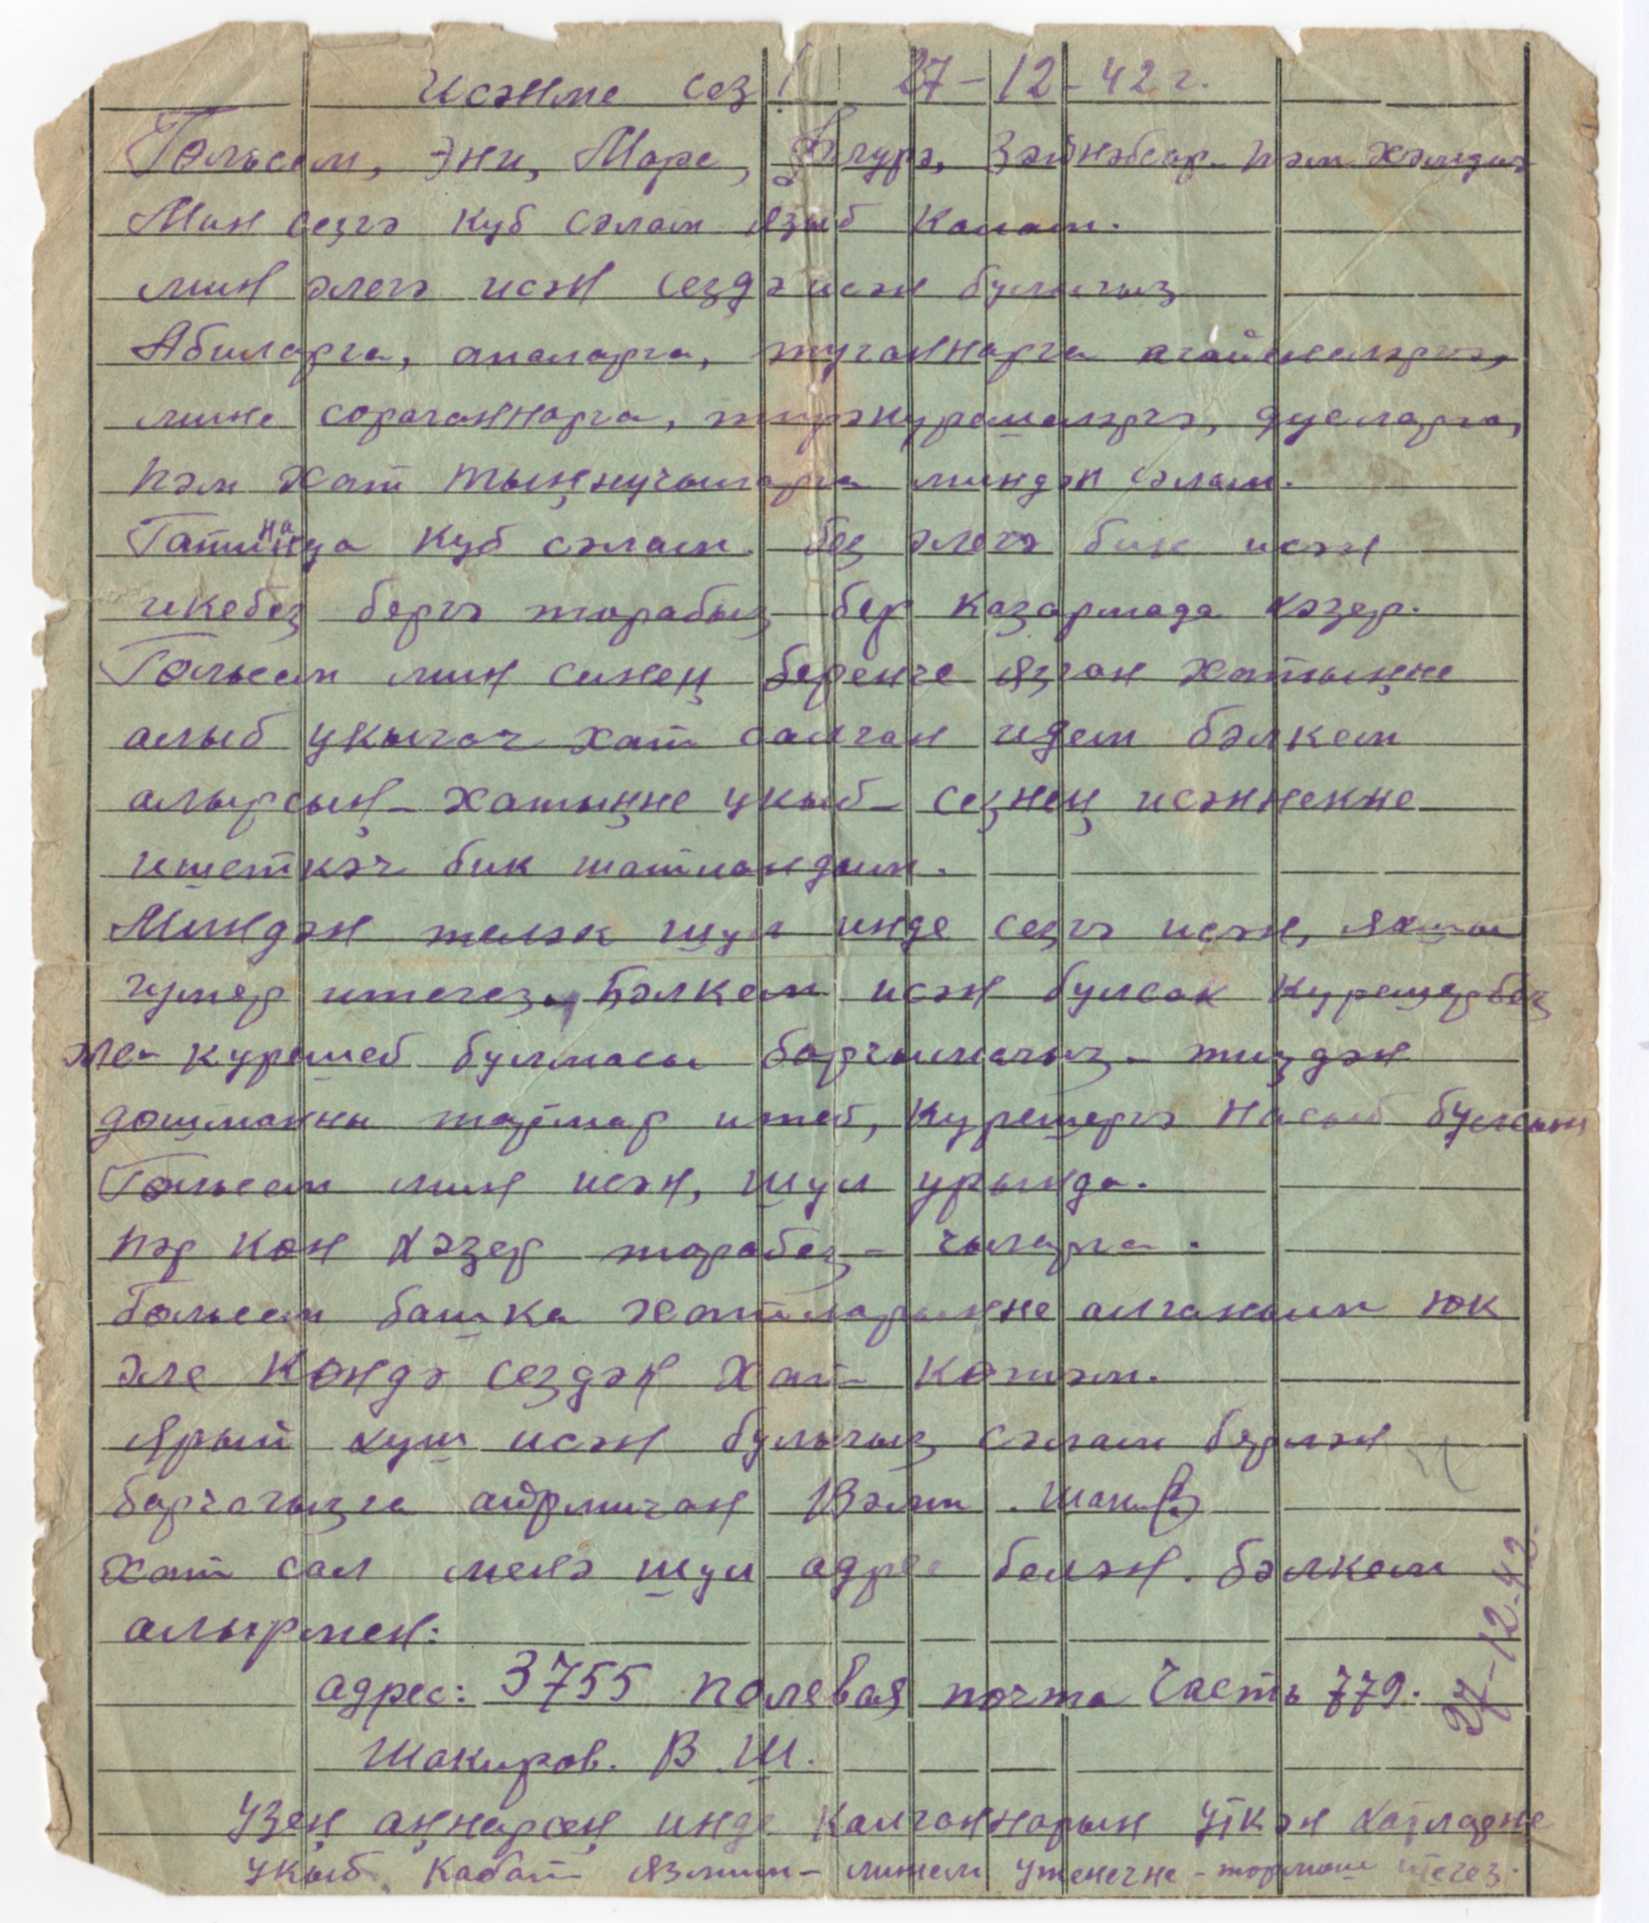 Исәнме сез! 27-12-42 г.
Гөльсем, Әни, Марс, Флурә, Зәйнәбсар һәм Хәмдия
Мин сезгә куб сәлам языб калам.
мин әлегә исән сездә исән булыгыз
Абыларга, апаларга, туганнарга агайенеләргә,
мине сораганнарга, тирәкүрешеләргә, дусларга,
һәм хат тыңнучыларга миндән сәлам.
куб сәлам. без әлегә бик исән
икебез бергә торабыз бер казармада хәзер.
Гөльсем мин синең беренче язган хатыңне
алыб укыгач хат салган идем бәлкем
алырсың - хатыңне укыб - сезнең исәннекне
ишеткәч бик шатландым.
Миндән теләк шул инде сезгә исән, яхшы
гумер итегез. Бәлкем исән булсак курешербез
әле курешеб булмасы баргымагыз. тиздән
дошманны тармар итеб, курешергә насыб булсын
Гөльсем мин исән, шул урында.
һәр көн хәзер торабыз - чыгарга.
Гөльсем башка хатларыңне алганым юк
әле көндә сездән хат көтәм.
ярый хуш исән булыгыз сәлам берлән
барчагызга Вәли. Шаки
хат сал менә шул адрес белән. бәлкем
алырмен:
адрес: 3755 полевая почта часть 779.
Шакиров. В. Ш.
Үзең аңнарсең инде калганнарын үткән хатларне
укыб. кабат язмим - тормош итегез.
27-12-42.